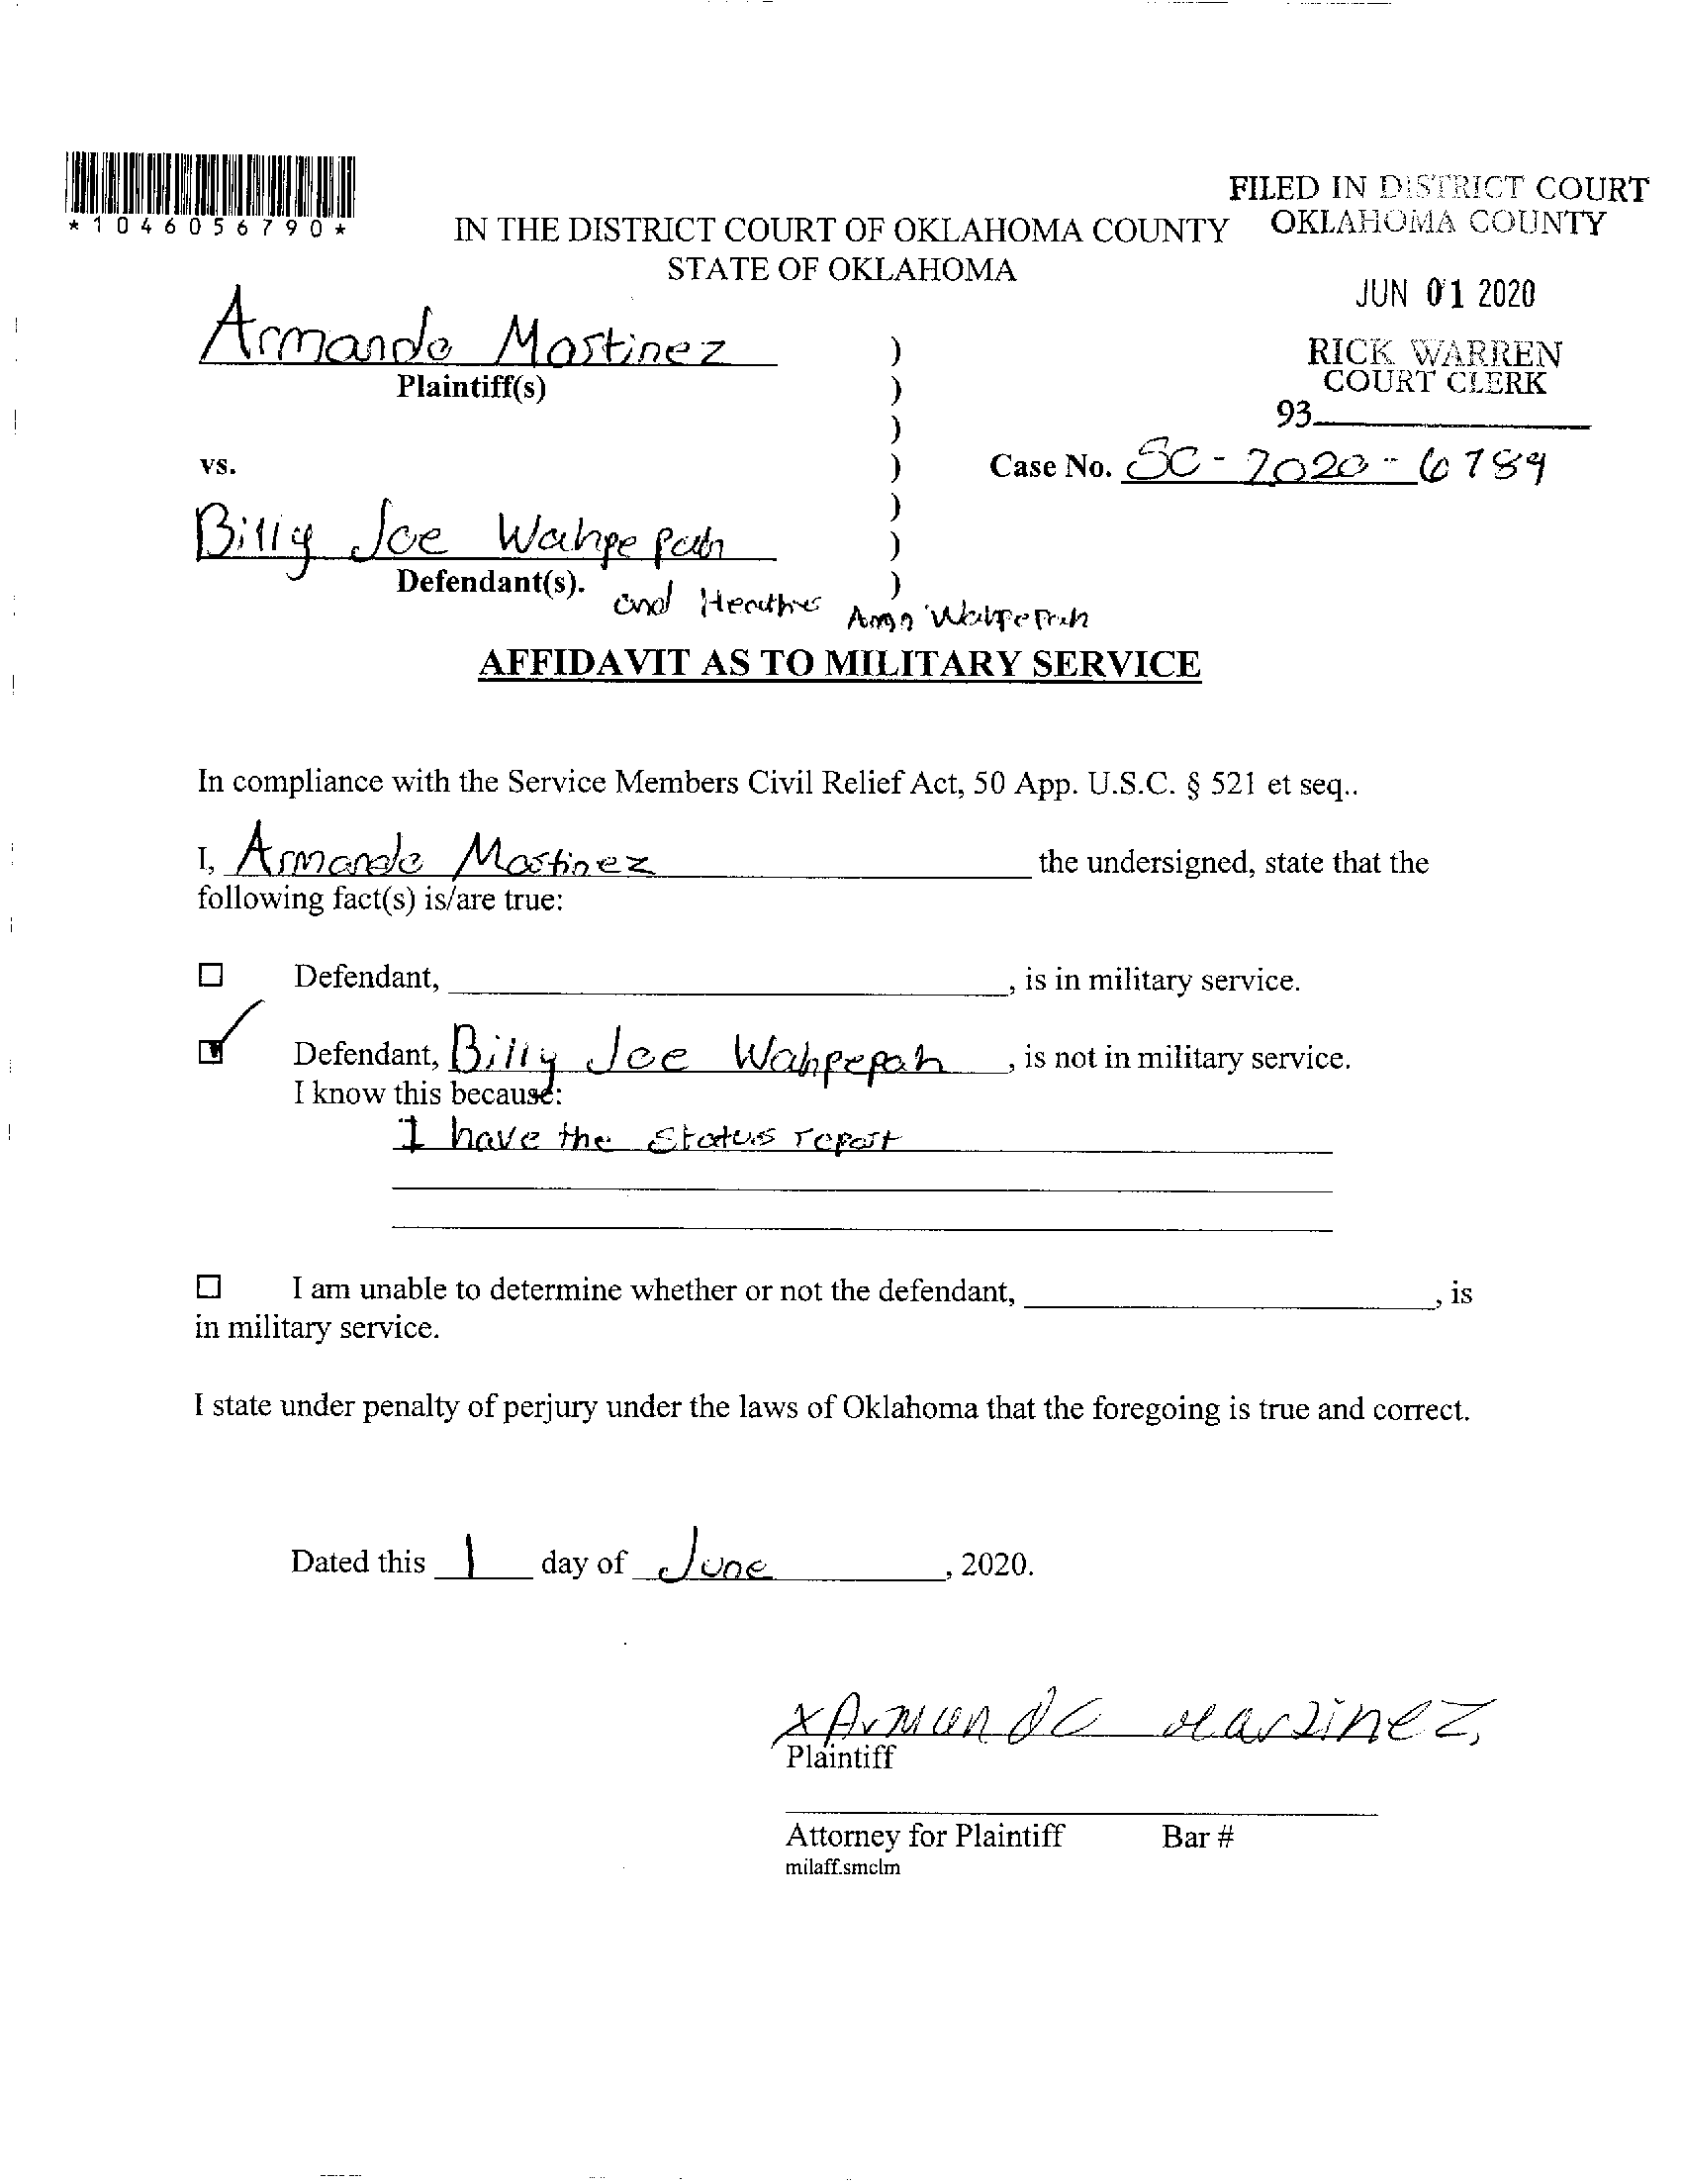 *1046056790*
FILED IN DISTRICT COURT
OKLAHOMA COUNTY
IN THE DISTRICT COURT OF OKLAHOMA COUNTY
STATE OF OKLAHOMA
JUN 01 2020
RICK WARREN
COURT CLERK
93
Armando Martinez )
Plaintiff(s) )
)
vs. ) Case No. SC-2020-6789
)
Billy Joe Wahpepah )
Defendant(s). )
and Heather Ann Wahpepah
AFFIDAVIT AS TO MILITARY SERVICE
In compliance with the Service Members Civil Relief Act, 50 App. U.S.C. § 521 et seq..
I, Armando Martinez the undersigned, state that the
following fact(s) is/are true:
☐ Defendant, , is in military service.
☑ Defendant, Billy Joe Wahpepah , is not in military service.
I know this because:
I have the status report
☐ I am unable to determine whether or not the defendant, , is
in military service.
I state under penalty of perjury under the laws of Oklahoma that the foregoing is true and correct.
Dated this 1 day of June , 2020.
x Armando Martinez
Plaintiff
Attorney for Plaintiff Bar #
milaff.smclm